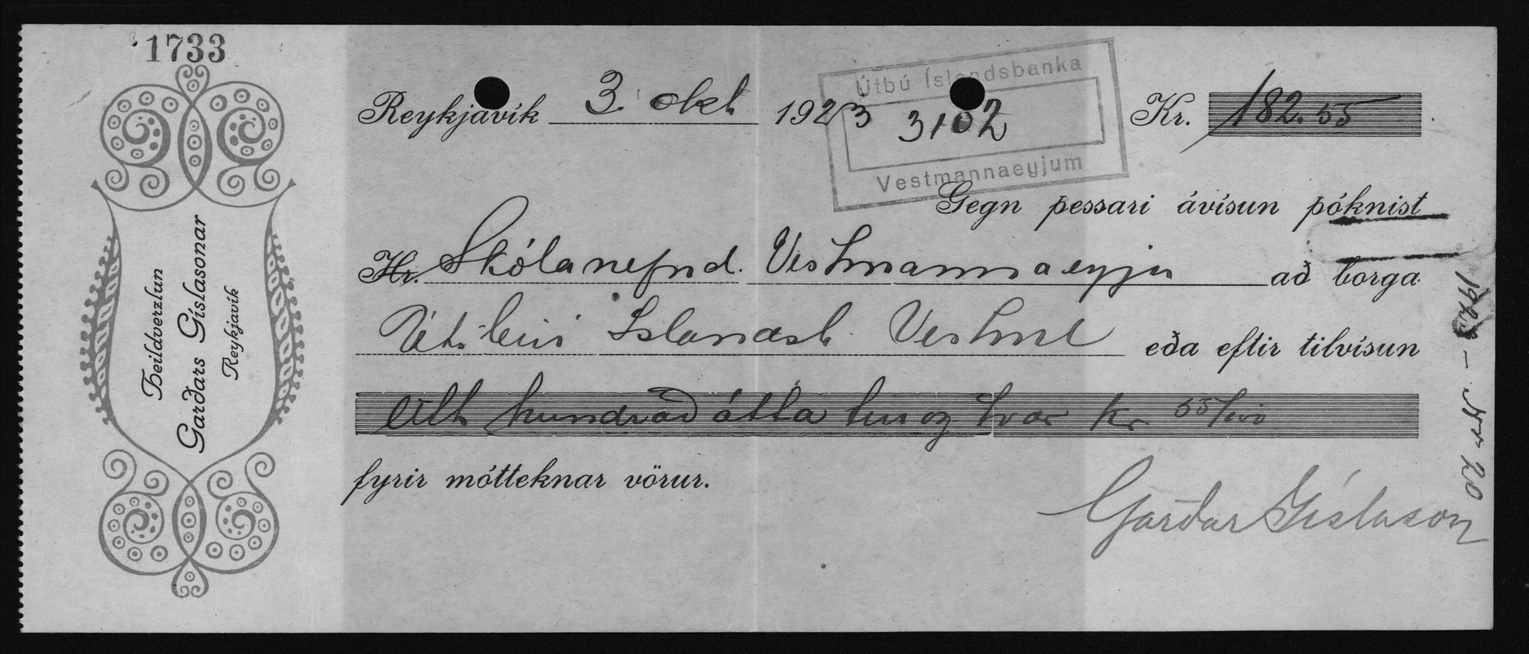 1733
Heildverzlun
Garðars Gíslasonar
Reykjavík
Reykjavík 3. okt 1923
Útbú Íslandsbanka
3102
Vestmannaeyjum
Kr. 182.55
Gegn þessari ávísun þóknist
Hr. Skólanefnd. Vestmannaeyju að borga
Íslandsb. Vestm eða eftir tilvísun
Eitt hundrað átta tíu og tvær kr 55/100
fyrir mótteknar vörur.
Garðar Gíslason
Nr 20